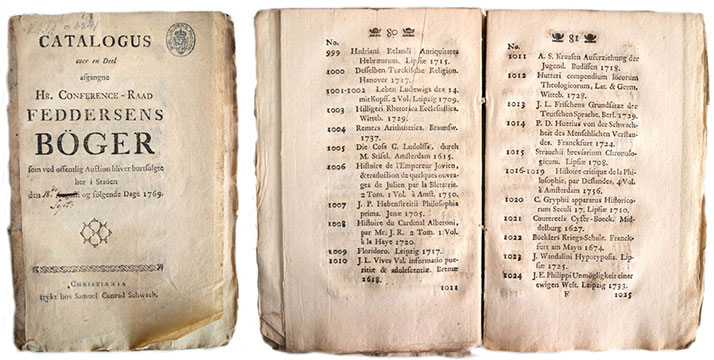 CATALOGUS
over en Deel
afgangne
HR. CONFERENCE-RAAD
FEDDERSENS
BÖGER
som ved offentlig Auction bliver bortsolgte
her i Staden
den og følgende Dage 1769.
CHRISTIANIA
trykt hos Samuel Conrad Schwach.
80
No.
999 Hadriani Relandi Antiquitates
Hebræorum. Lipsiæ 1715.
1000 Desselben Turckische Religion.
Hanover 1717.
1001-1002 Leben Ludewigs des 14.
mit Kupff. 2 Vol. Leipzig 1709.
1003 Hilligeri Rhetorica Ecclesiastica.
Witteb. 1729.
1004 Remers Arithmetica. Braunsw.
1737.
1005 Die Coss C. Ludolffs, durch
M. Stifel. Amsterdam 1615.
1006 Histoire de l'Empereur Jovien,
& traduction de quelques ouvra-
ges de Julien par la Bletterie.
2 Tom. 1 Vol. à Amst. 1750.
1007 J. P. Hebenstreitii Philosophia
prima. Jenæ 1705.
1008 Histoire du Cardinal Alberoni,
par Mr. J. R. 2 Tom. 1 Vol.
à la Haye 1720.
1009 Floridoro. Leipzig 1717.
1010 J. L. Vives Val. informatio pue-
ritiæ & adolescentiæ. Bremæ
1618.
1011
81
No.
1011 A. S. Krausen Aufferziehung der
Jugend. Budissen 1718.
1012 Hutteri compendium locorum
Theologicorum, Lat. & Germ.
Witteb. 1728.
1013 J. L. Frischens Grundsätze der
Teutschen Sprache. Berl. 1729.
1014 P. D. Huetius von der Schwach-
heit des Menschlichen Verstan-
des. Franckfurt 1724.
1015 Strauchii breviarium Chronolo-
gicum. Lipsiæ 1708.
1016-1019 Histoire critique de la Phi-
losophie, par Deslandes, 4 Vol.
à Amsterdam 1756.
1020 C. Gryphii apparatus Historico-
rum Seculi 17. Lipsiæ 1710.
1021 Coutereels Cyfer-Boeck. Mid-
delburg 1627.
1022 Böcklers Kriegs-Schule. Franck-
furt am Mayn 1674.
1023 J. Wandalini Hypotyposis. Lip-
siæ 1725.
1024 J. E. Philippi Unmöglichkeit einer
ewigen Welt. Leipzig 1733.
F 1025